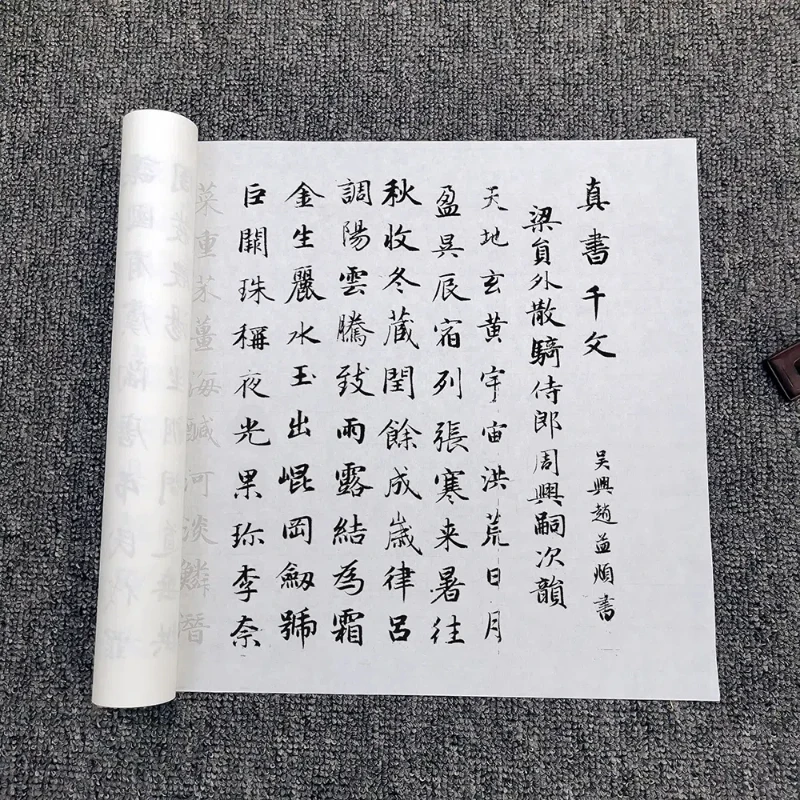 真書千文
吴興趙益順書
梁員外散騎侍郎周興嗣次韻
天地玄黄宇宙洪荒日月
盈昃辰宿列張寒来暑往
秋收冬藏閏餘成歲律呂
調陽雲騰致雨露結為霜
金生麗水玉出崐岡劔號
巨闕珠稱夜光果珎李柰
菜重芥薑海鹹河淡鱗潛